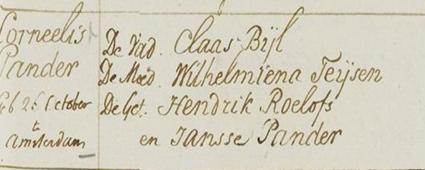 Corneelis
Pander
Geb 26 October
te
Amsterdam
De Vad. Claas Bijl
De Moed. Wilhelmiena Teijsen
De Get. Hendrik Roelofs
en Jansse Pander